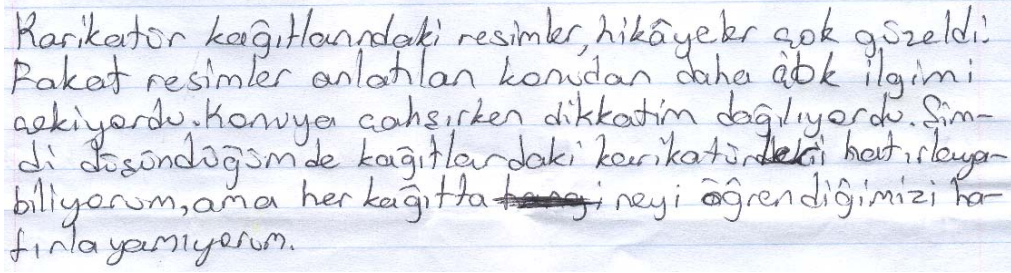 Karikatür kağıtlarındaki resimler, hikâyeler çok güzeldi.
Fakat resimler anlatılan konudan daha çok ilgimi
çekiyordu. Konuya çalışırken dikkatim dağılıyordu. Şim-
di düşündüğümde kağıtlardaki karikatürleri hatırlaya-
biliyorum, ama her kağıtta neyi öğrendiğimizi ha-
tırlayamıyorum.